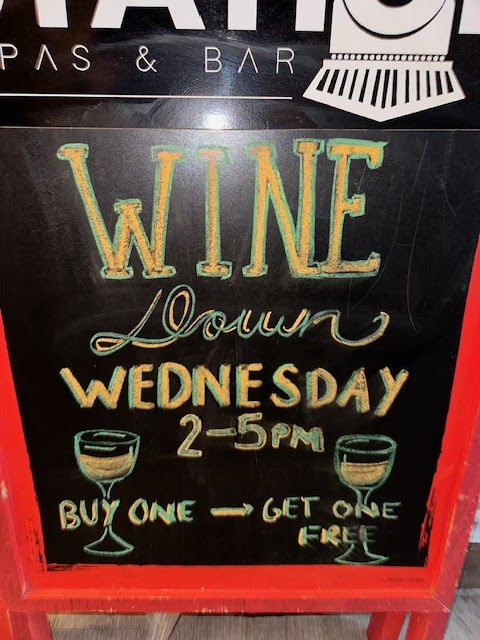 PAS & BAR
WINE
Down
WEDNESDAY
2-5PM
BUY ONE → GET ONE
FREE